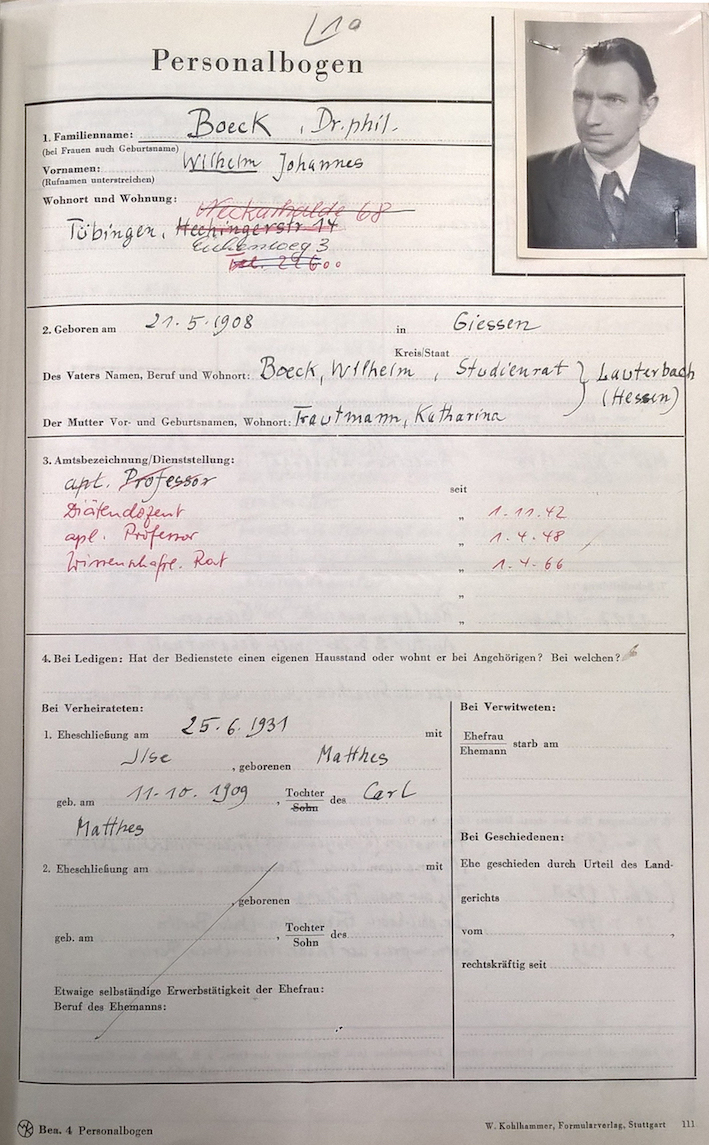 1a
Personalbogen
1. Familienname: Boeck, Dr. phil.
(bei Frauen auch Geburtsname)
Vornamen: Wilhelm Johannes
(Rufnamen unterstreichen)
Wohnort und Wohnung:
Neckarhalde 68
Tübingen, Hechingerstr. 14
Eulenweg 3
2. Geboren am 21.5.1908 in Giessen
Kreis/Staat
Des Vaters Namen, Beruf und Wohnort: Boeck, Wilhelm, Studienrat } Lauterbach
(Hessen)
Der Mutter Vor- und Geburtsnamen, Wohnort: Trautmann, Katharina
3. Amtsbezeichnung/Dienststellung:
apl. Professor
seit
Diätendozent „ 1.11.42
apl. Professor „ 1.4.48
Wissenschaftl. Rat „ 1.4.66
„
„
4. Bei Ledigen: Hat der Bedienstete einen eigenen Hausstand oder wohnt er bei Angehörigen? Bei welchen?
Bei Verheirateten:
1. Eheschließung am 25.6.1931 mit
Ilse, geborenen Matthes
geb. am 11.10.1909, Tochter des Carl
Sohn
Matthes
2. Eheschließung am mit
, geborenen
geb. am , Tochter des
Sohn
Etwaige selbständige Erwerbstätigkeit der Ehefrau:
Beruf des Ehemanns:
Bei Verwitweten:
Ehefrau
Ehemann starb am
Bei Geschiedenen:
Ehe geschieden durch Urteil des Land-
gerichts
vom ,
rechtskräftig seit
Bea. 4 Personalbogen
W. Kohlhammer, Formularverlag, Stuttgart 111